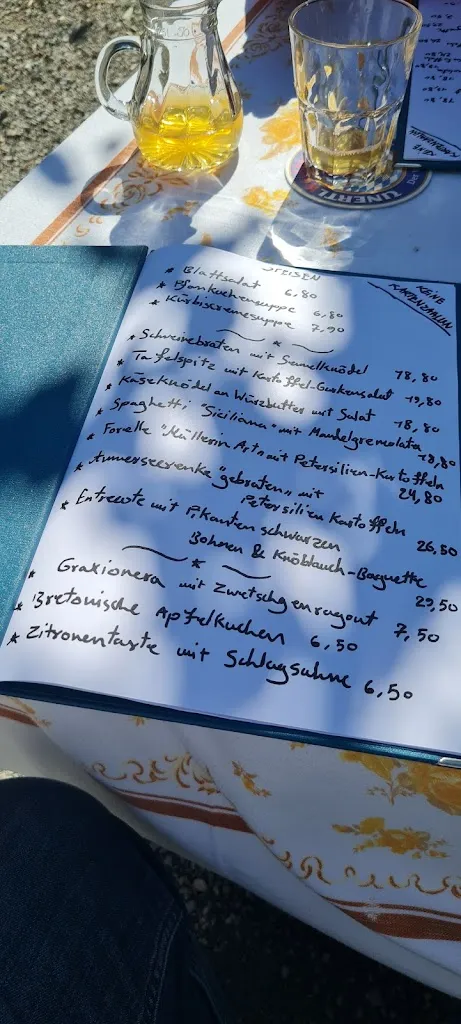 SPEISEN
KEINE
KARTENZAHLUNG
* Blattsalat 6,80
* Pfankuchensuppe 6,80
* Kürbiscremesuppe 7,90
* Schweinebraten mit Semelknödel 18,80
* Tafelspitz mit Kartoffel-Gurkensalat 19,80
* Käseknödel an Würzbutter mit Salat 18,80
* Spaghetti "Siciliana" mit Mandelgremolata 18,80
* Forelle "Müllerin Art" mit Petersilien-Kartoffeln 24,80
* Ammerseerenke "gebraten" mit
Petersilien Kartoffeln 26,50
* Entrecote mit Pikanten schwarzen
Bohnen & Knoblauch-Baguette 29,50
* mit Zwetschgenragout 7,50
* Bretonische Apfelkuchen 6,50
* Zitronentarte mit Schlagsahne 6,50